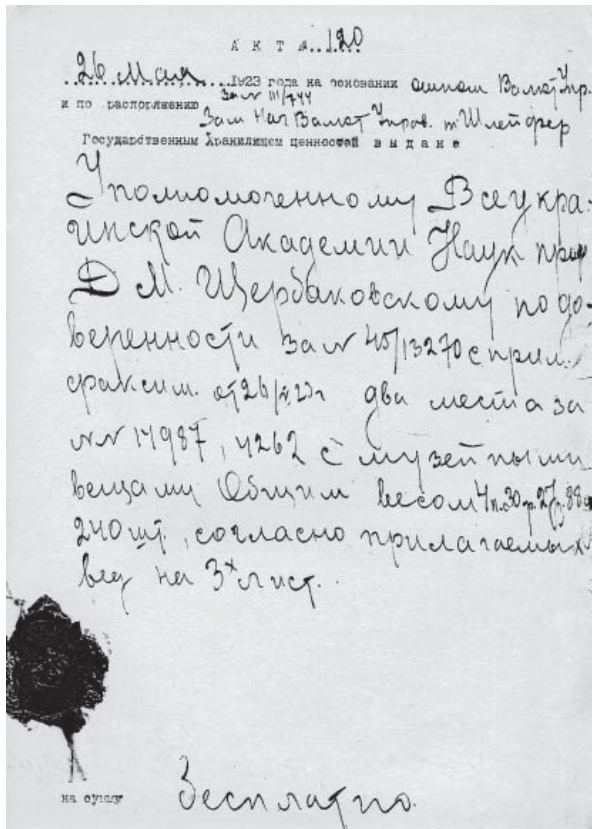 АКТ № 120
26 Мая 1923 года на основании отнош Валют Упр.
за № III/744
и по распоряжению Зам Нач Валют Упров. т Шлейфер
Государственным Хранилищем ценностей выдано
Уполномоченному Всеукра-
инской Академии Наук проф
Д М. Щербаковскому по до-
веренности за № 45/13270 с прил.
факсим. от 26/V, 23г два места за
№№ 17987, 4262 с музейными
вещами Общим весом 4п. 30 ф. 27з. 88д
240 шт., согласно прилагаемых
вед на 3х лист.
на сумму Бесплатно.